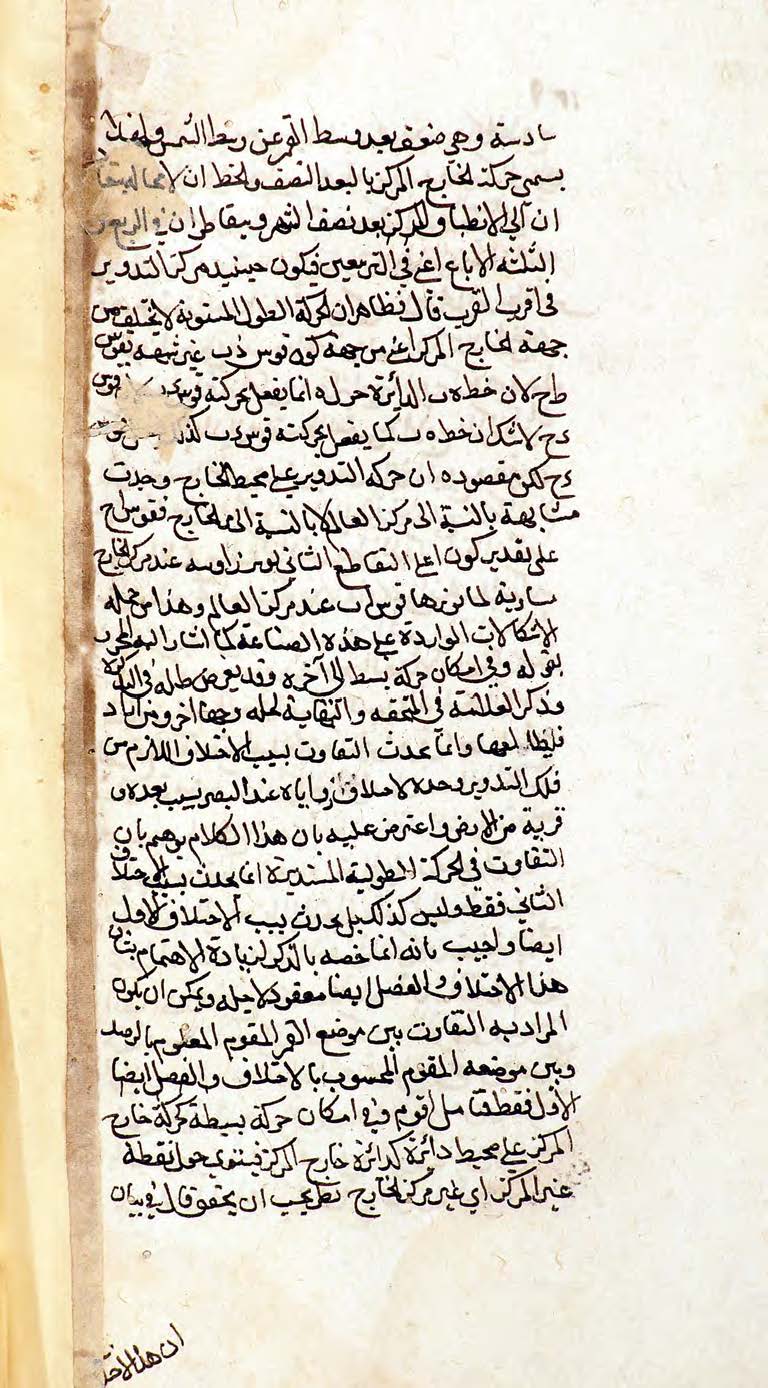 سادسة وهي ضعف بعد وسط القمر عن وسط الشمس ولهذا
يسمى حركة الخارج المركز بالبعد المضعف والخط ان لا محالة
ان الى الانطباق المركز بعد نصف الشهر ويتقاطران في الربع
الثلثة الارباع اعني في التربيعين فيكون حينئذ مركز التدوير
في اقرب القرب قال فظاهر ان لحركة الطول المستوية لا يختلف من
جهة الخارج المركز اعني من جهة كون قوس د ب غير شبيهة بقوس
ط ح لان خط ه ب الدائرة حوله انما يفعل بحركته قوس
ء ح لا شك ان خط ه ب كما يفعل بحركته قوس د ب كذلك
ء ح لكن مقصوده ان حركة التدوير على محيط الخارج وجدت
متشابهة بالنسبة الى مركز العالم لا بالنسبة الى الخارج فقوس ا ح
على تقدير كون ا على التقاطع الثاني زاوية عند مركز الخارج
مساوية لما توترها قوس ا ب عند مركز العالم وهذا من جملة
الاشكالات الواردة على هذه الصناعة كما اشار اليه المحرر
بقوله وفي امكان حركة بسيطة الى آخره وقد يعرض
وذكر العلامة في التحفة والنهاية لحله وجها آخر ومن اراد
فليطالعها وانما يحدث التفاوت بسبب الاختلاف اللازم من
فلك التدوير وحده لاختلاف زواياه عند البصر بسبب بعده و
قربه من الارض واعترض عليه بان هذا الكلام يوهم بان
التفاوت في الحركة الطولية المستديرة انما يحدث بسبب الاختلاف
الثاني فقط وليس كذلك بل يحدث بسبب الاختلاف الاول
ايضا واجيب بانه انما خصه بالذكر لزيادة الاهتمام بشان
هذا الاختلاف والفصل ايضا معقود لاجله ويمكن ان يكون
المراد به التفاوت بين موضع القمر المقوم المعلوم بالرصد
وبين موضعه المقوم المحسوب بالاختلاف والفصل ايضا
الاول فقط فتامل اقوم وفي امكان حركة بسيطة كحركة خارج
المركز على محيط دائرة كدائرة خارج المركز فيستوي حول نقطة
غير المركز اي غير مركز الخارج نظر يجب ان يحقق قال في بيان
ان هذا الاختلا